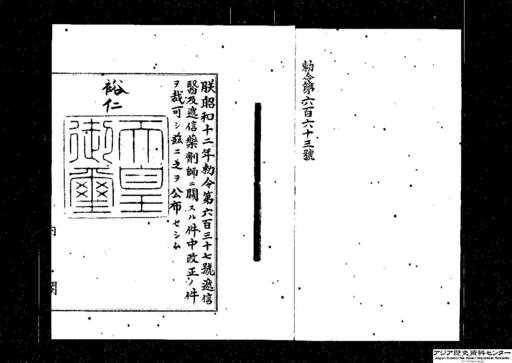 勅令第六百六十三號
朕昭和十二年勅令第六百三十七號遞信
醫及遞信藥劑師ニ關スル件中改正ノ件
ヲ裁可シ茲ニ之ヲ公布セシム
裕仁
天皇
御璽
内閣
アジア歴史資料センター
Japan Center for Asian Historical Records